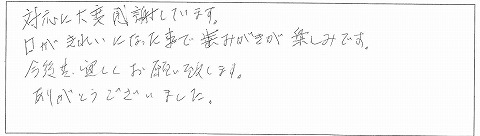 対応に大変感謝しています。
口がきれいになった事で歯みがきが楽しみです。
今後も宜しくお願い致します。
ありがとうございました。